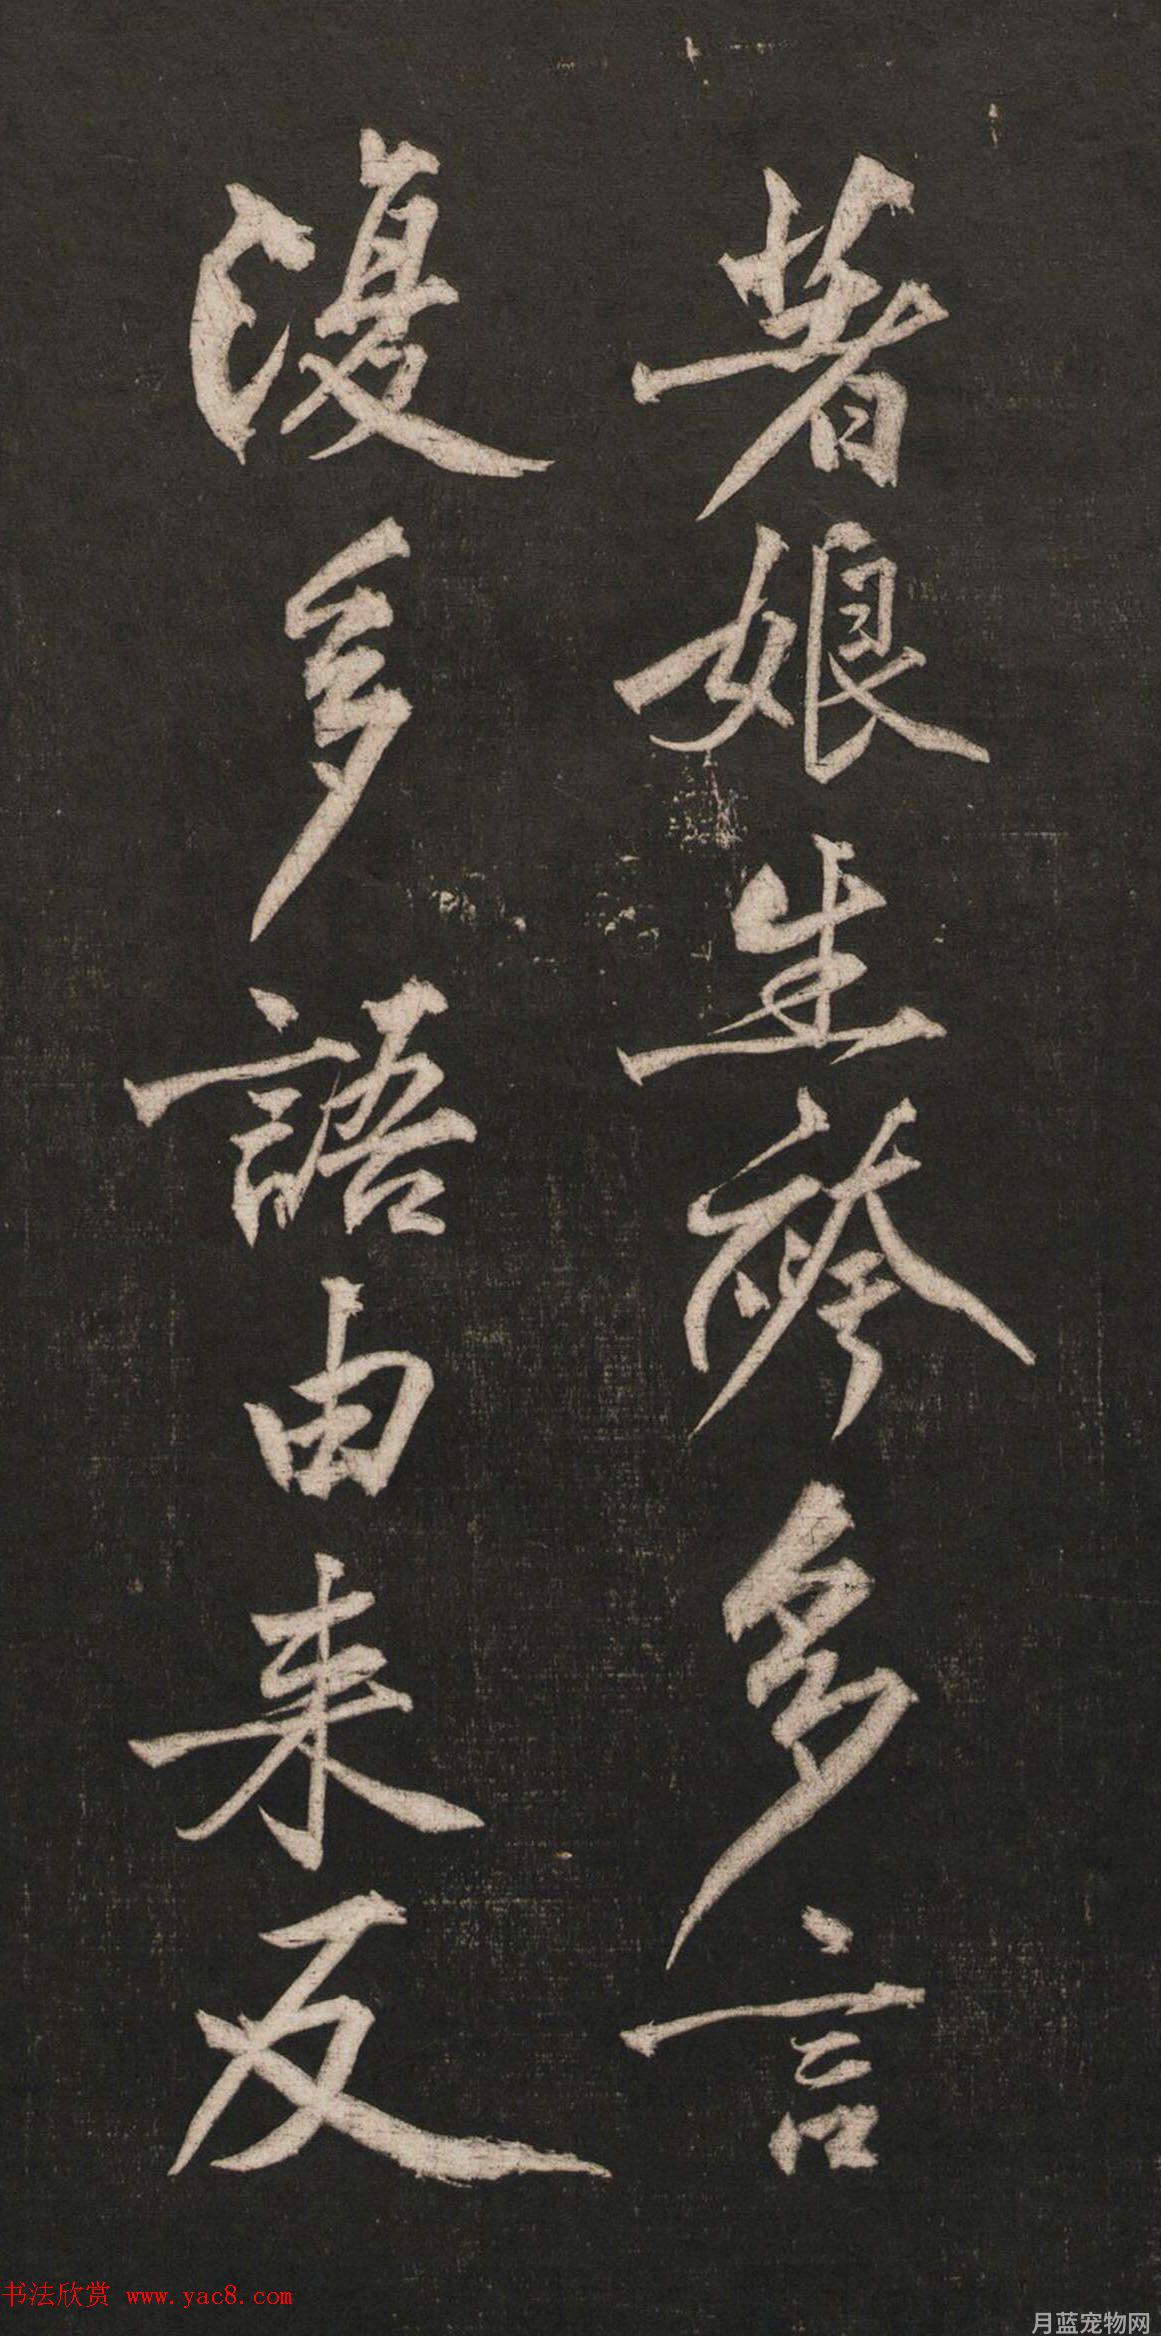 著娘生袴多言
復多語由来反
书法欣赏 www.yac8.com
月蓝宠物网